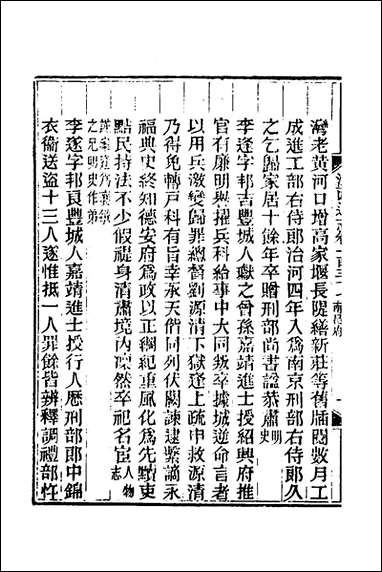 灣老黃河口增高家堰長隄繕新莊等舊牐閱數月工
成進工部右侍郎治河四年入爲南京刑部右侍郎久
之乞歸家居十餘年卒贈刑部尚書諡恭肅明史
李逢字邦吉豐城人嶽之曾孫嘉靖進士授紹興府推
官有廉明與擢兵科給事中大同叛卒據城逆命言者
以用兵激變歸罪總督劉源清下獄逢上疏申救源清
乃得免轉戶科有旨幸承天偕同列伏闕諫逮繫謫永
福典史終知德安府爲政以正綱紀重風化爲先黷吏
點民持法不少假禔身清肅境內凜然卒祀名宦人物志
謹案逢爲遂
之兄明史作弟
李遂字邦良豐城人嘉靖進士授行人歷刑部郎中錦
衣衞送盜十三人遂惟抵一人罪餘皆辨釋調禮部忤